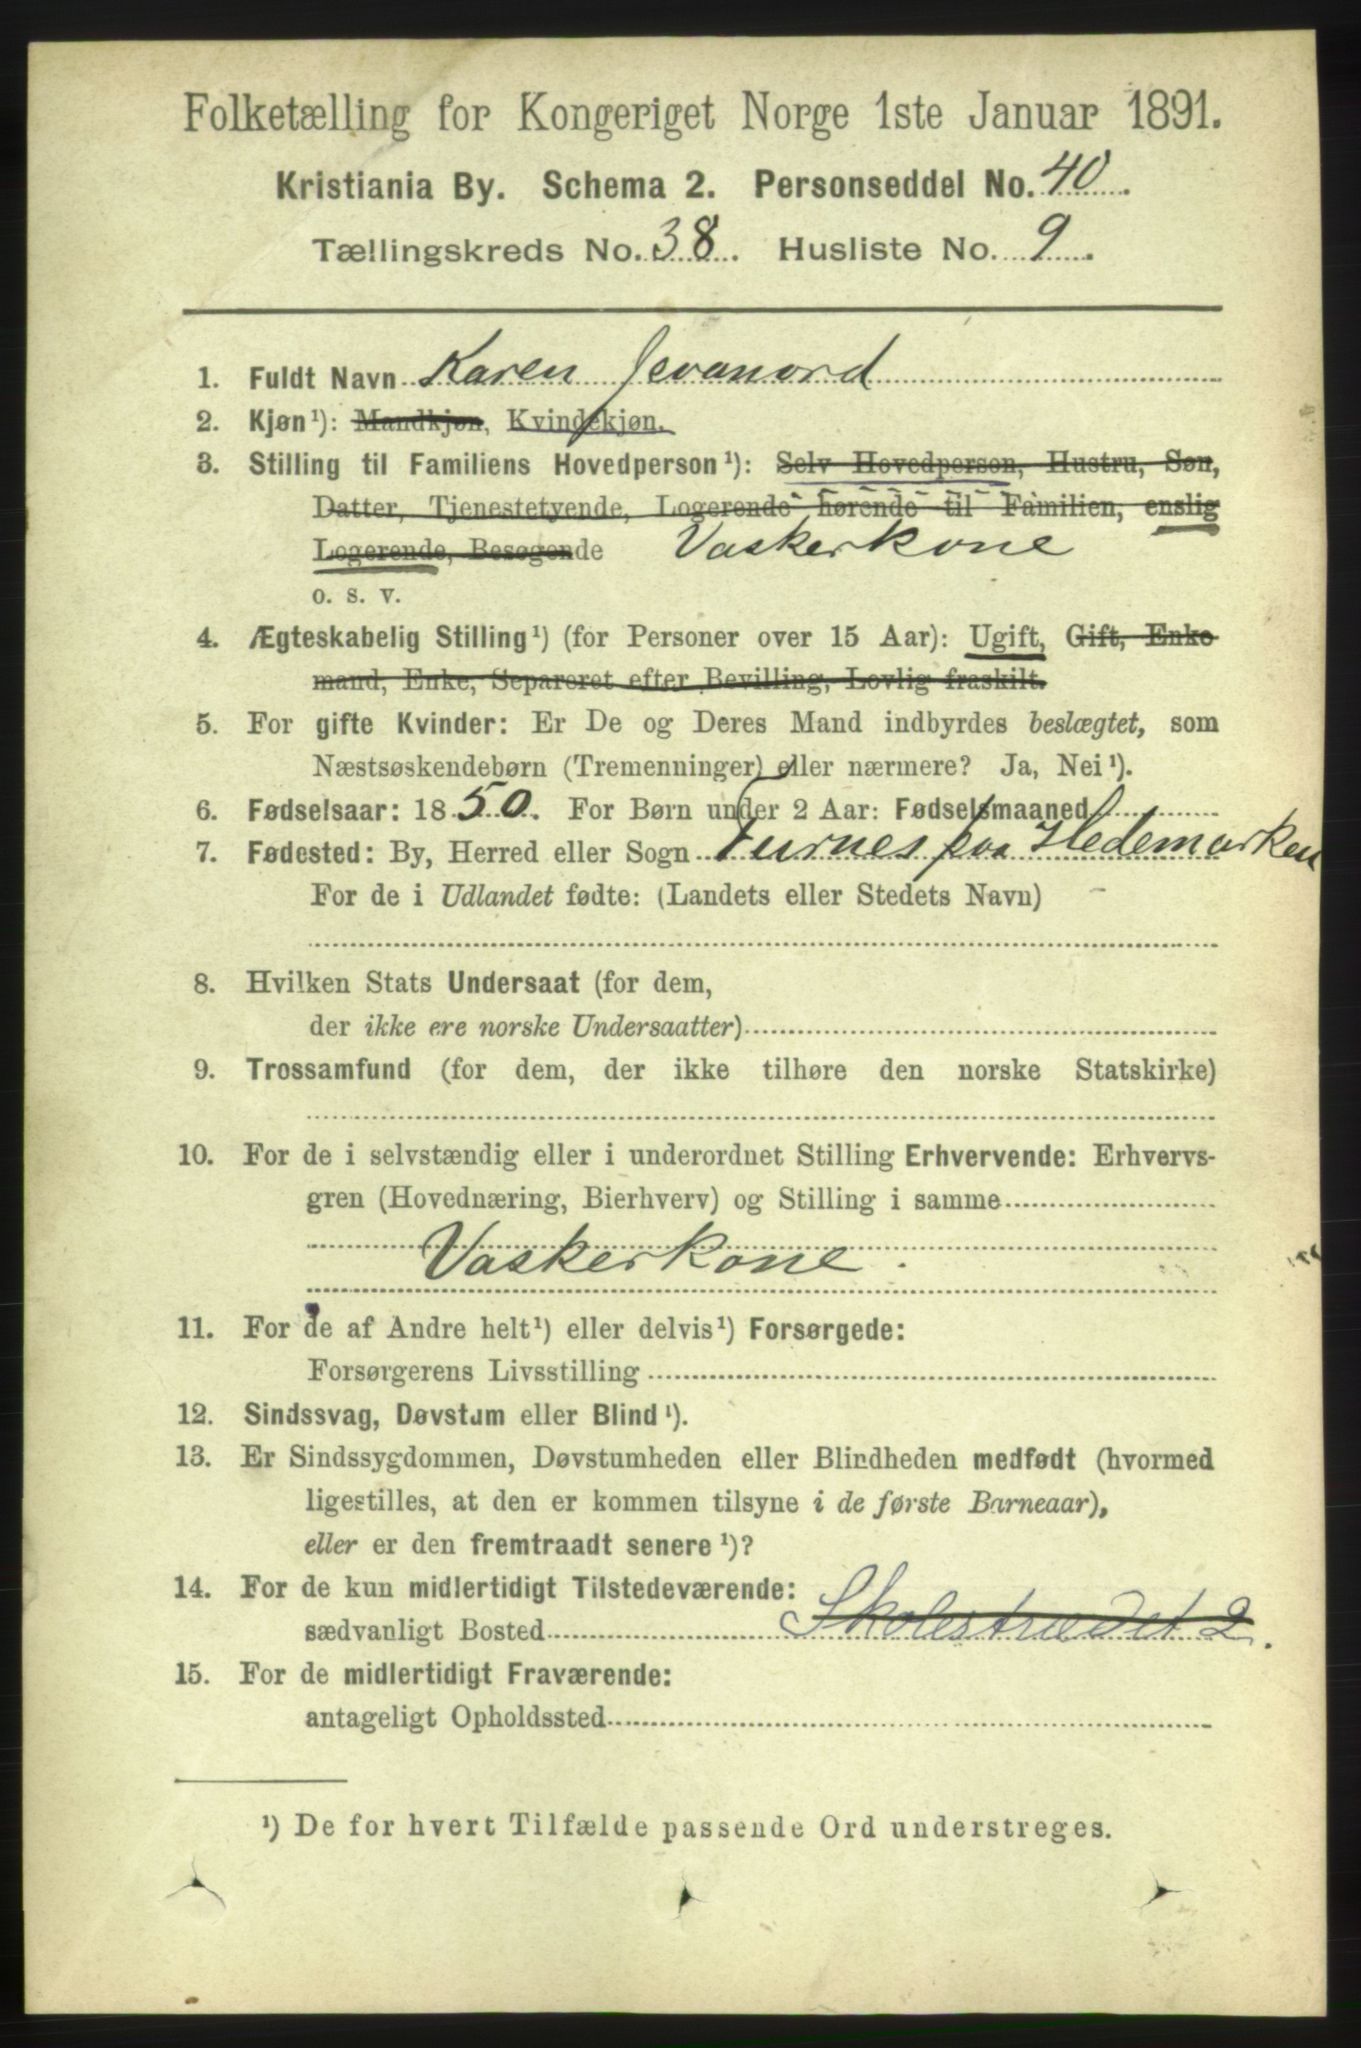 Folketælling for Kongeriget Norge 1ste Januar 1891.
Kristiania By. Schema 2. Personseddel No. 40.
Tællingskreds No. 38. Husliste No. 9.
1. Fuldt Navn Karen Jevanord
2. Kjøn¹): Mandkjøn, Kvindekjøn.
3. Stilling til Familiens Hovedperson¹): Selv Hovedperson, Hustru, Søn,
Datter, Tjenestetyende, Logerende hørende til Familien, enslig
Logerende, Besøgende Vaskerkone
o. s. v.
4. Ægteskabelig Stilling¹) (for Personer over 15 Aar): Ugift, Gift, Enke-
mand, Enke, Separeret efter Bevilling, Lovlig fraskilt.
5. For gifte Kvinder: Er De og Deres Mand indbyrdes beslægtet, som
Næstsøskendebørn (Tremenninger) eller nærmere? Ja, Nei¹).
6. Fødselsaar: 1850. For Børn under 2 Aar: Fødselsmaaned
7. Fødested: By, Herred eller Sogn Furnes paa Hedemarken
For de i Udlandet fødte: (Landets eller Stedets Navn)
8. Hvilken Stats Undersaat (for dem,
der ikke ere norske Undersaatter)
9. Trossamfund (for dem, der ikke tilhøre den norske Statskirke)
10. For de i selvstændig eller i underordnet Stilling Erhvervende: Erhvervs-
gren (Hovednæring, Bierhverv) og Stilling i samme
Vaskerkone.
11. For de af Andre helt¹) eller delvis¹) Forsørgede:
Forsørgerens Livsstilling
12. Sindssvag, Døvstum eller Blind¹).
13. Er Sindssygdommen, Døvstumheden eller Blindheden medfødt (hvormed
ligestilles, at den er kommen tilsyne i de første Barneaar),
eller er den fremtraadt senere¹)?
14. For de kun midlertidigt Tilstedeværende:
sædvanligt Bosted Skolestrædet 2.
15. For de midlertidigt Fraværende:
antageligt Opholdssted
¹) De for hvert Tilfælde passende Ord understreges.